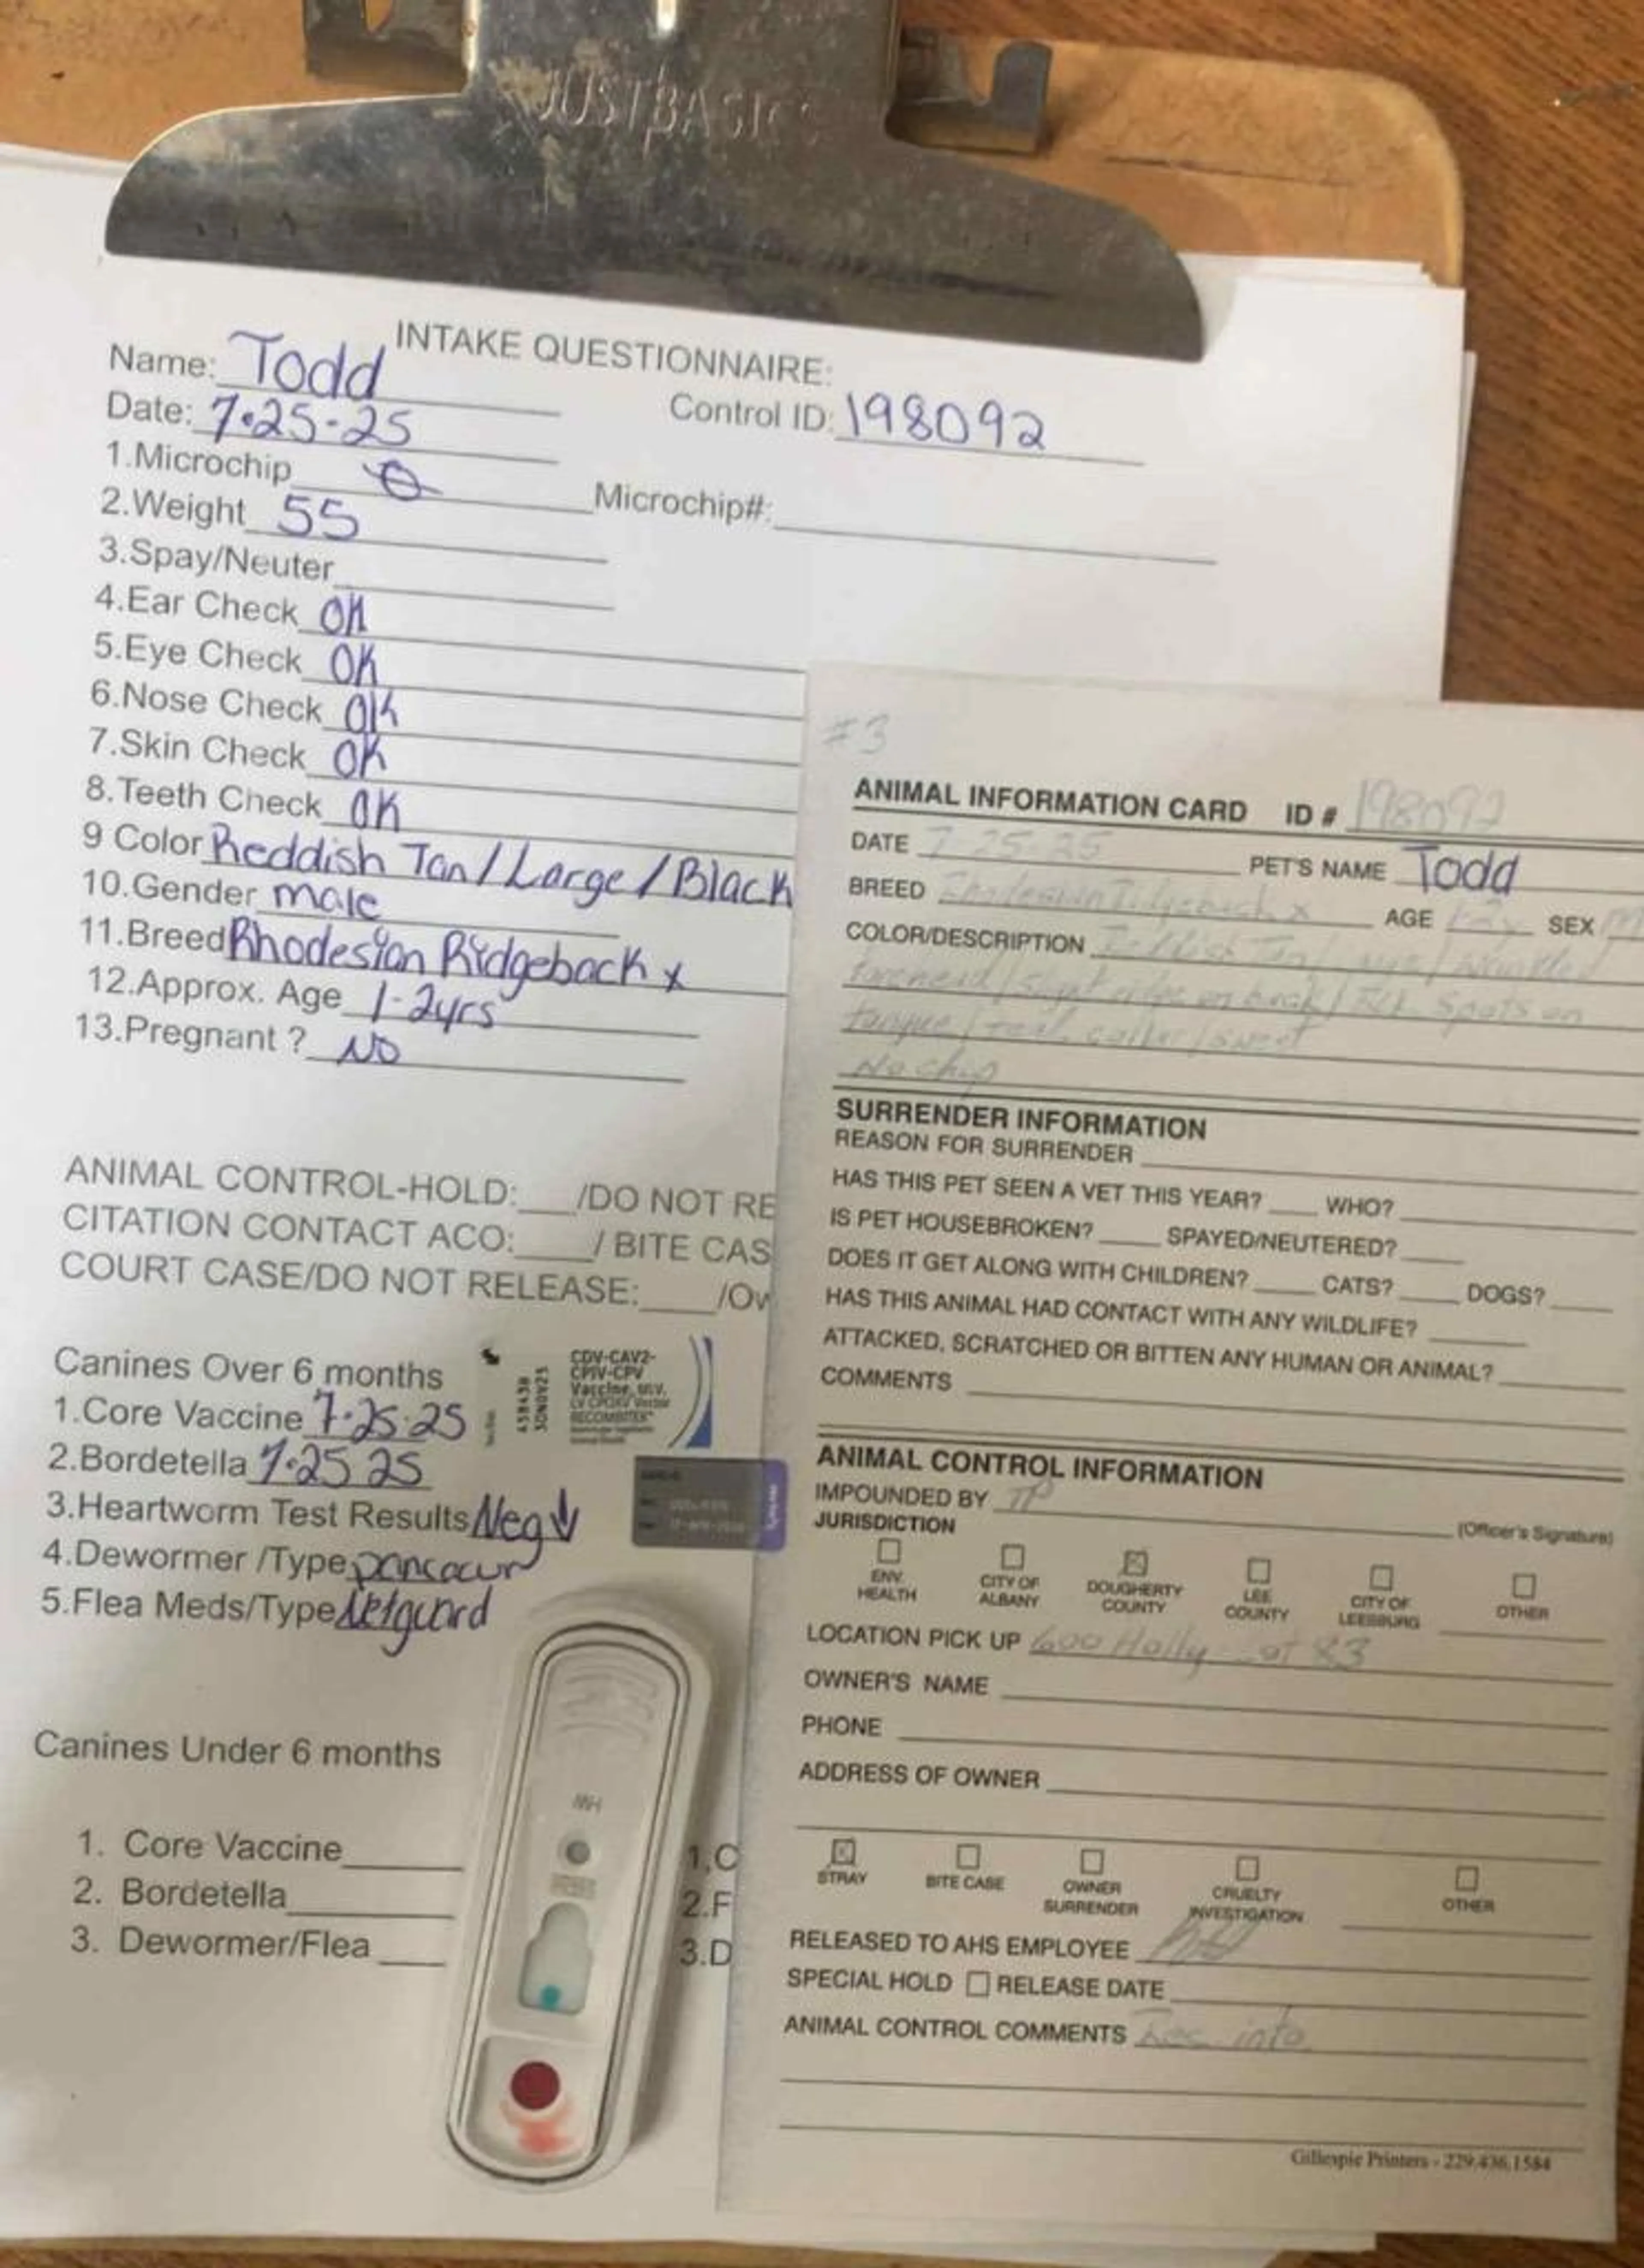 JUSTBASICS
INTAKE QUESTIONNAIRE:
Name: Todd
Date: 7-25-25 Control ID: 198092
1.Microchip Ꝋ Microchip#:
2.Weight 55
3.Spay/Neuter
4.Ear Check OK
5.Eye Check OK
6.Nose Check OK
7.Skin Check OK
8.Teeth Check OK
9 Color Reddish Tan/Large/Black
10.Gender male
11.Breed Rhodesian Ridgeback x
12.Approx. Age 1-2yrs
13.Pregnant ? NO
ANIMAL CONTROL-HOLD:___/DO NOT RE
CITATION CONTACT ACO:____/ BITE CAS
COURT CASE/DO NOT RELEASE:____/Ow
Canines Over 6 months
1.Core Vaccine 7-25-25
2.Bordetella 7-25 25
3.Heartworm Test Results Neg
4.Dewormer /Type
5.Flea Meds/Type Nexguard
CDV-CAV2-
CPIV-CPV
Vaccine, MLV,
RECOMBITEK
Canines Under 6 months
1. Core Vaccine
2. Bordetella
3. Dewormer/Flea
1.C
2.F
3.D
HW
#3
ANIMAL INFORMATION CARD ID # 198092
DATE 7-25-25 PET'S NAME Todd
BREED Rhodesian Ridgeback x AGE 1-2y SEX M
COLOR/DESCRIPTION Reddish Tan / Large / wrinkled
forehead / slight ridge on back / Blk Spots on
tongue / collar / sweet
No chip
SURRENDER INFORMATION
REASON FOR SURRENDER
HAS THIS PET SEEN A VET THIS YEAR? WHO?
IS PET HOUSEBROKEN? SPAYED/NEUTERED?
DOES IT GET ALONG WITH CHILDREN? CATS? DOGS?
HAS THIS ANIMAL HAD CONTACT WITH ANY WILDLIFE?
ATTACKED, SCRATCHED OR BITTEN ANY HUMAN OR ANIMAL?
COMMENTS
ANIMAL CONTROL INFORMATION
IMPOUNDED BY TP
(Officer's Signature)
JURISDICTION
☐ ENV. HEALTH ☐ CITY OF ALBANY ☒ DOUGHERTY COUNTY ☐ LEE COUNTY ☐ CITY OF LEESBURG ☐ OTHER
LOCATION PICK UP 600 Holly at 83
OWNER'S NAME
PHONE
ADDRESS OF OWNER
☒ STRAY ☐ BITE CASE ☐ OWNER SURRENDER ☐ CRUELTY INVESTIGATION ☐ OTHER
RELEASED TO AHS EMPLOYEE
SPECIAL HOLD ☐ RELEASE DATE
ANIMAL CONTROL COMMENTS Rec info
Gillespie Printers - 229.436.1584